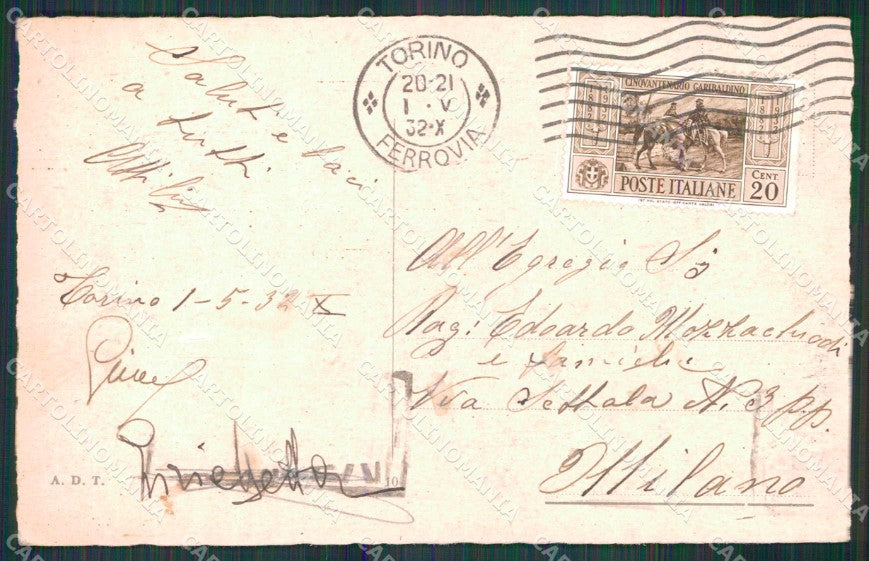 Saluti e baci
a tutti
Attilio
Torino 1-5-32 X
A. D. T.
10
TORINO
20-21
1 · V
32·X
FERROVIA
CINQVANTENARIO GARIBALDINO
1882 1932
1882 1932
POSTE ITALIANE
CENT.
20
All'Egregio Sig
Rag: Edoardo
e famiglie
Via Settala N. 3 pp.
Milano
CARTOLINOMANIA